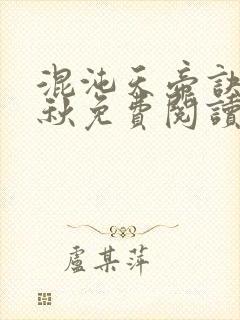 混沌天帝訣
秋免費閱讀
盧某萍